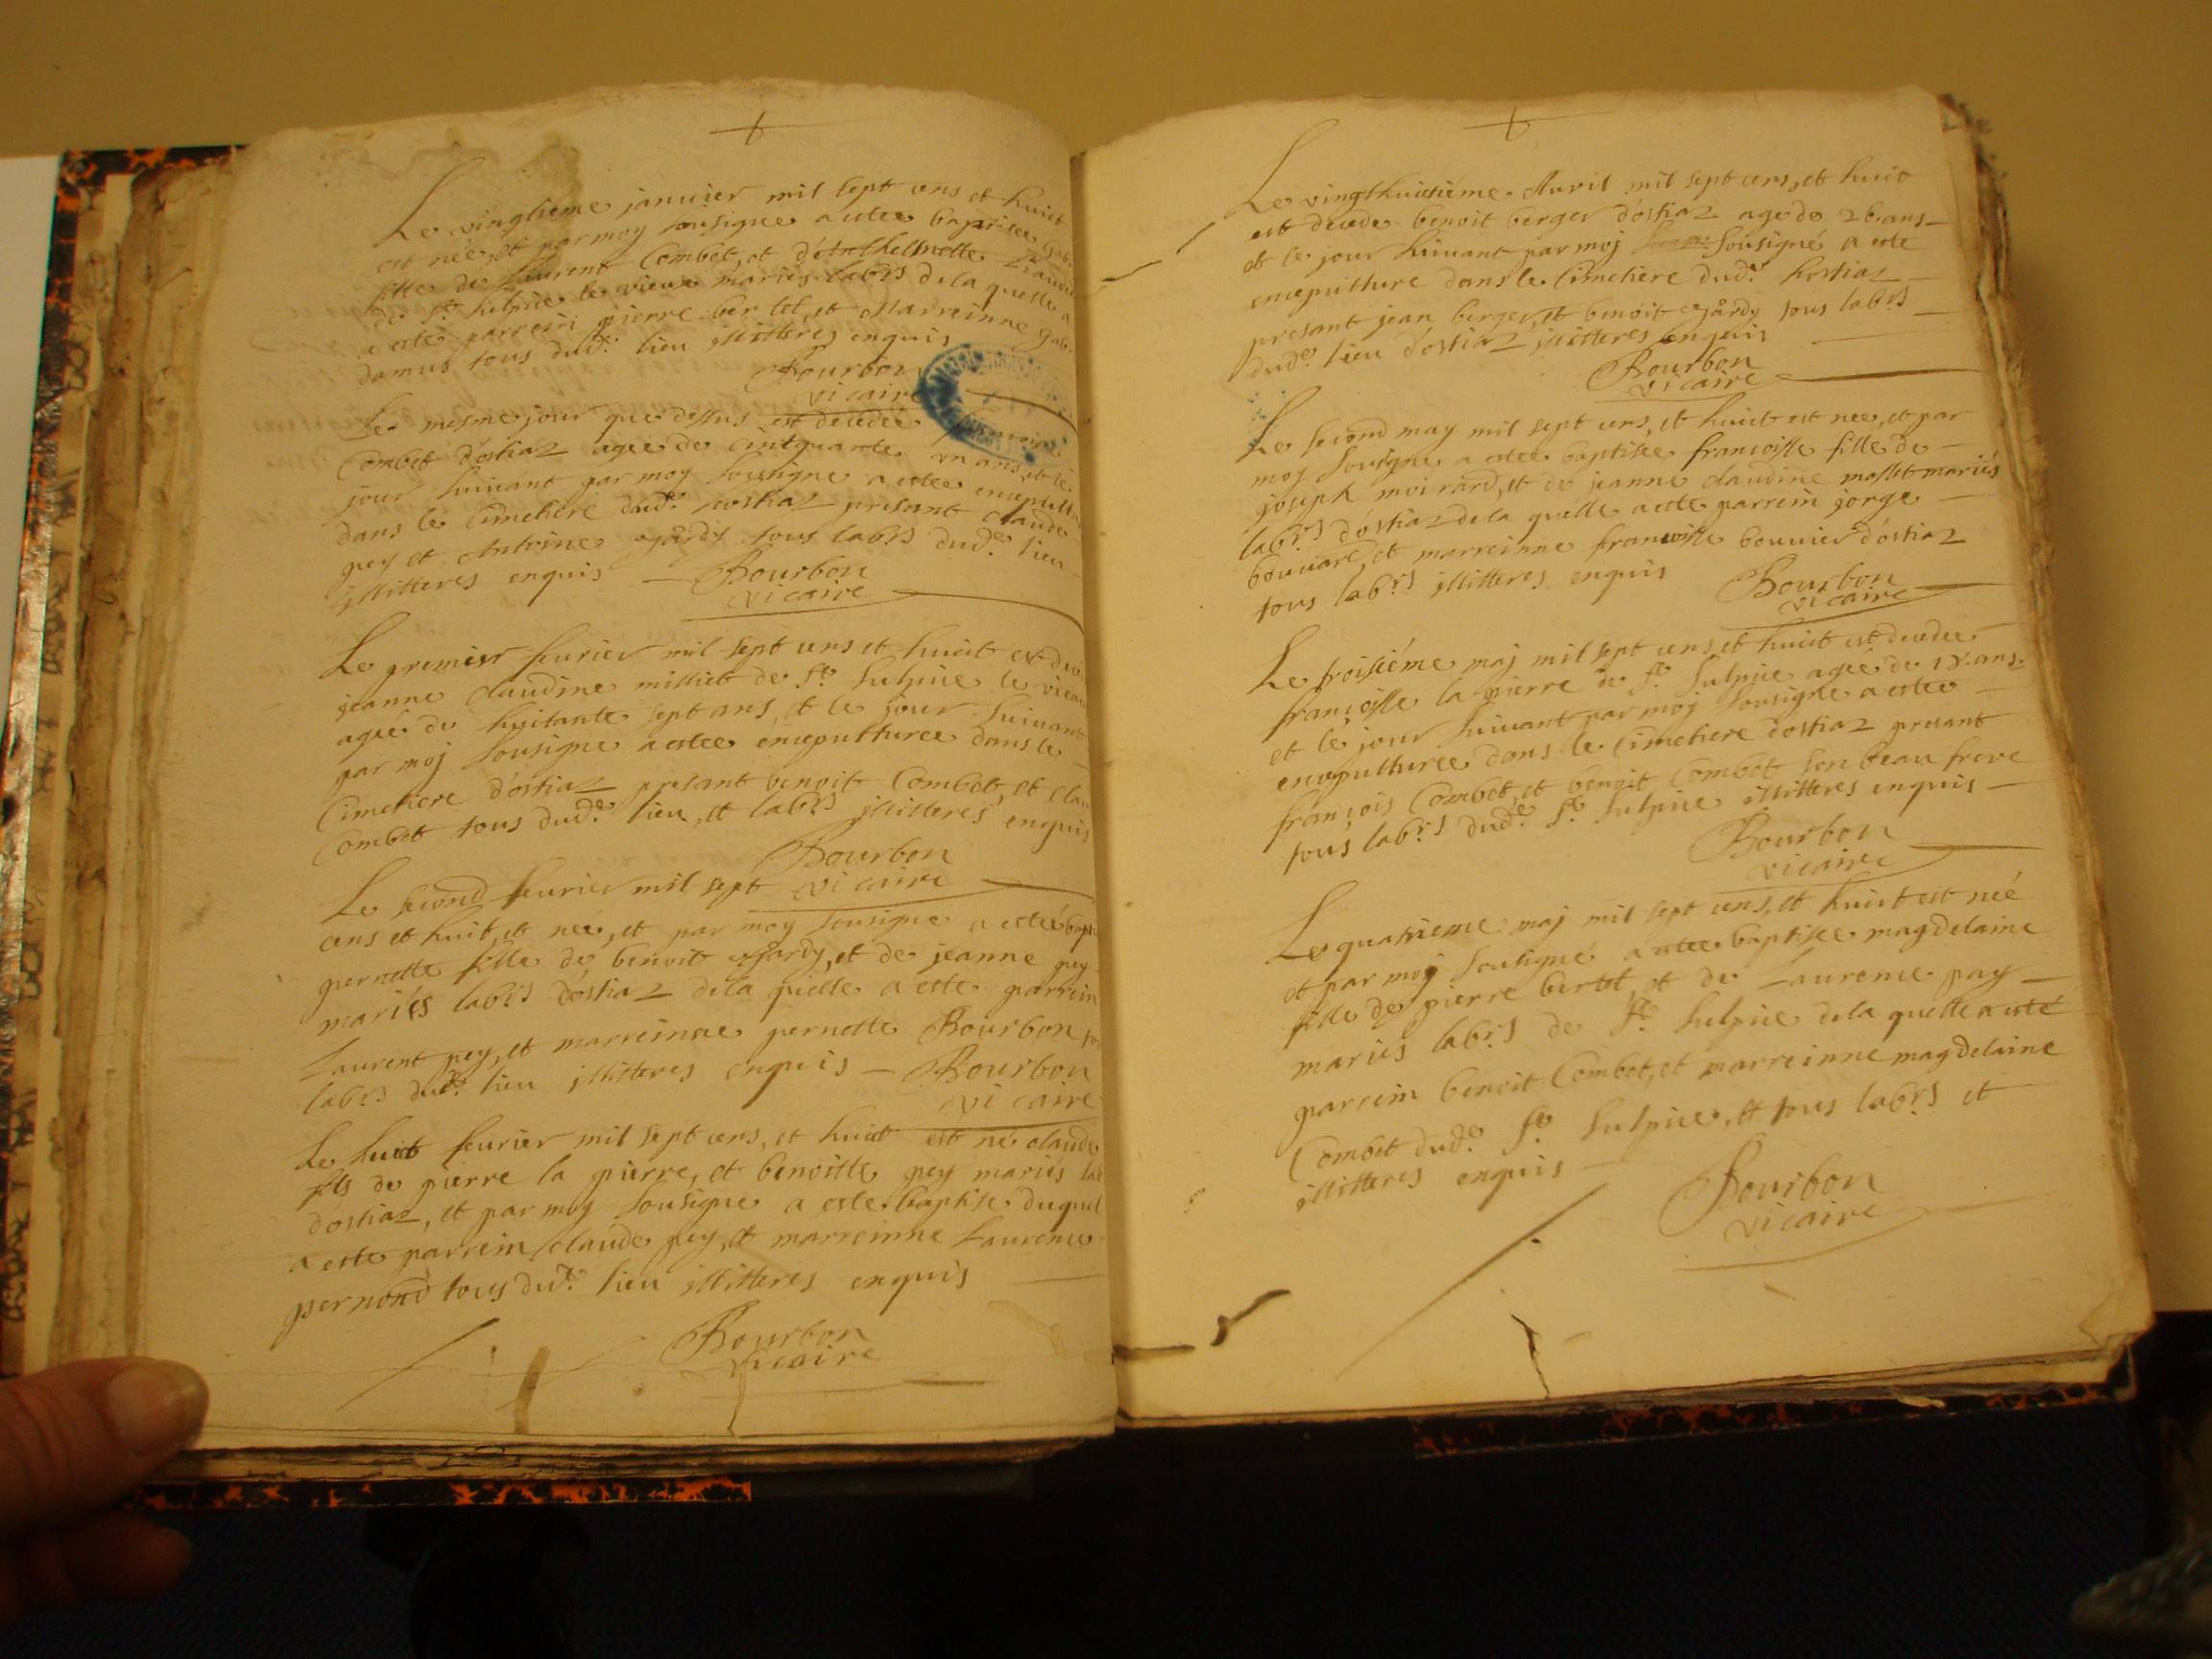 Le vingtieme janvier mil sept cens et huict
est née, et par moy sousigne a estee baptisee
fille de Laurent Combet, et d'Anthelmette
de St. Sulpice le vieux mariés labrs dela quelle a
este parrein pierre bertet, et Marreinne
damus tous dude. lieu illitteres enquis
Bourbon
vicaire
Le mesme jour que dessus est decedée
Combet d'ostiaz agee de cintquante un ans, et le
jour suivant par moy soussigne a estee
dans le Cimetiere dude. hostiaz presant claude
pey et Antoine tous labrs dude. lieu
illitteres enquis — Bourbon
vicaire
Le premier feurier mil sept cens et huict est
jeanne claudine milliet de St. Sulpice le vieux
agée de huitante sept ans, et le jour suivant
par moj sousigne a estee encepulturee dans le
Cimetiere d'ostiaz presant benoit Combet, et
Combet tous dude. lieu, et labrs illitteres enquis
Bourbon
vicaire
Le second feurier mil sept
cens et huit, et née, et par moy sousigne a estée
pernette fille de benoit et de jeanne pey
mariés labrs d'ostiaz dela quelle a este parrein
Laurent pey, et marreinne pernette Bourbon
labrs dude. lieu illitteres enquis — Bourbon
vicaire
Le huict feurier mil sept cens, et huict est né claude
fils de pierre la pierre, et benoitte pey mariés
d'ostiaz, et par moy sousigne a este baptise duquel
a este parrein claude pey, et marreinne Laurence
pernond tous dude. lieu illitteres enquis
Bourbon
vicaire
Le vingthuictiéme Auril mil sept cens, et huict
est decede benoit berger d'ostiaz age de 26. ans —
et le jour suivant par moj sousigné a este
encepulture dans le Cimetiere dude. hostiaz —
presant jean berger, et benoit tous labrs —
dude. lieu d'ostiaz illitteres enquis
Bourbon
vicaire
Le second may mil sept cens, et huict est nee, et par
moy sousigne a estee baptisee francoisse fille de —
joseph moirard, et de jeanne claudine mollet mariés
labrs d'ostiaz dela quelle a este parrein jorge —
bouuard, et marreinne francoisse bouuier d'ostiaz
tous labrs illitteres enquis
Bourbon
vicaire
Le troisiéme maj mil sept cens et huict est decedee —
francoisse la pierre de St. Sulpice agée de ans.
et le jour suivant par moj sousigne a estee —
encepulturee dans le Cimetiere d'ostiaz presant
françois Combet, et benoit Combet son beau frere
tous labrs dude. St. Sulpice illitteres enquis —
Bourbon
vicaire
Le quatrieme maj mil sept cens, et huict est née
et par moy sousigné a estee baptisee magdelaine
fille de pierre bertet, et de Laurence pay —
mariés labrs de St. Sulpice dela quelle a esté
parrein benoit Combet, et marreinne magdelaine
Combet dude. St. Sulpice, et tous labrs et
illitteres enquis —
Bourbon
vicaire